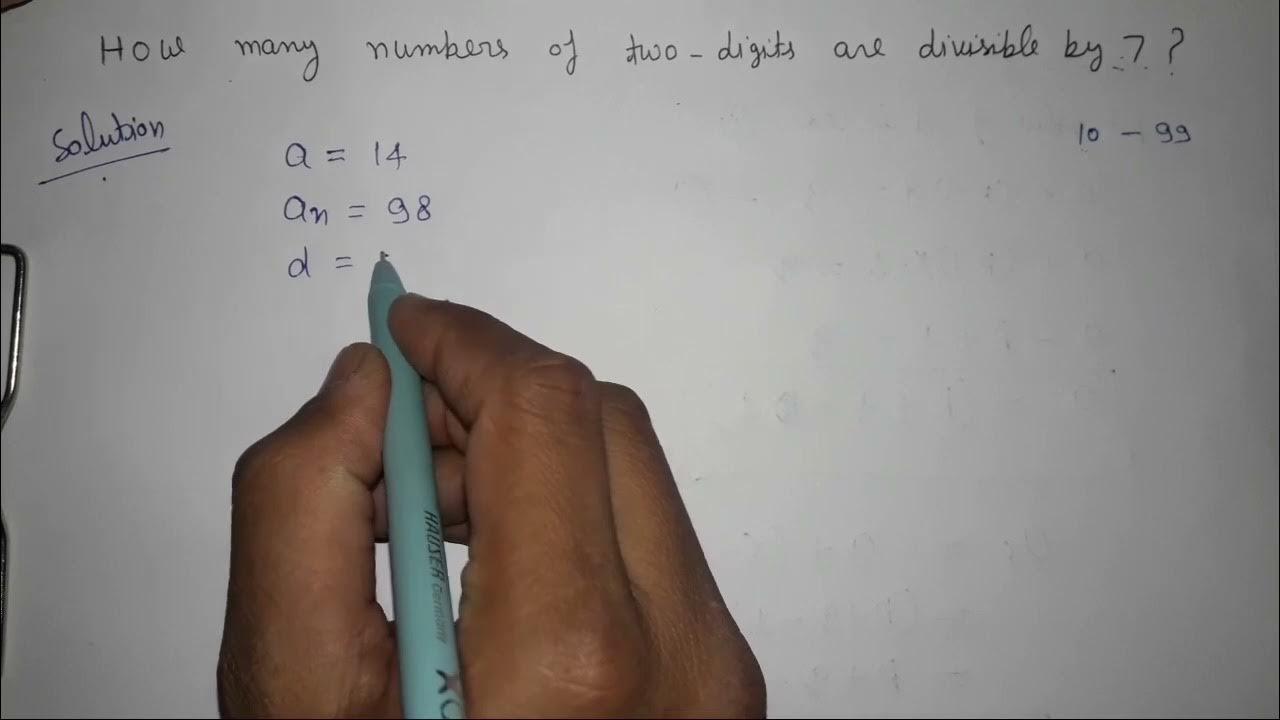 How many numbers of two-digits are divisible by 7?
10 - 99
Solution
a = 14
an = 98
d =
HAUSER Germany
XO